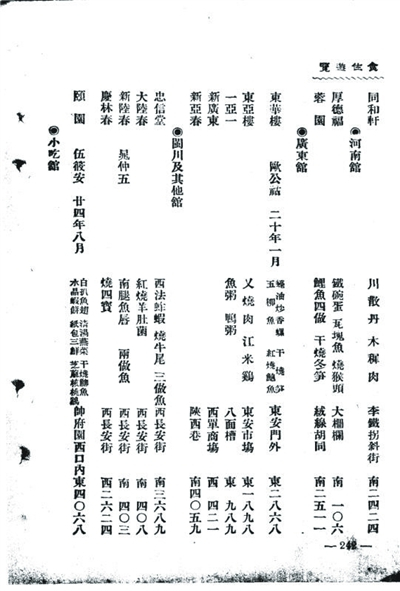 食住遊覽
同和軒 川散丹 木樨肉 李鐵拐斜街 南二四二四
◉河南館
厚德福 鐵碗蛋 瓦塊魚 燒猴頭 大柵欄 南一〇六
蓉園 鯉魚四做 干燒冬笋 絨線胡同 南二五一一
◉廣東館
東華樓 歐公祐 二十年一月 蠔油炒香螺 干燒笋 五柳魚 紅燒鮑魚 東安門外 東二八六八
東亞樓 叉燒肉 江米鷄 東安市場 東一八九八
一亞一 魚粥 鴨粥 八面槽 東九八九
新廣東 西單商場 西四二一
新亞春 陝西巷 南四〇五九
◉閩川及其他館
忠信堂 西法蚱蝦 燒牛尾 三做魚 西長安街 南三六八九
大陸春 紅燒羊肚菌 西長安街
新陸春 晁仲五 南腿魚唇 兩做魚 西長安街 南四〇三
慶林春 燒四寶 西長安街 西二六二四
頤園 伍筱安 廿四年八月 白扒魚翅 清湯燕菜 干燒鮑魚 水晶蝦餅 紙包三鮮 芝麻桃核鷄 帥府園西口內 東四〇六八
◉小吃館